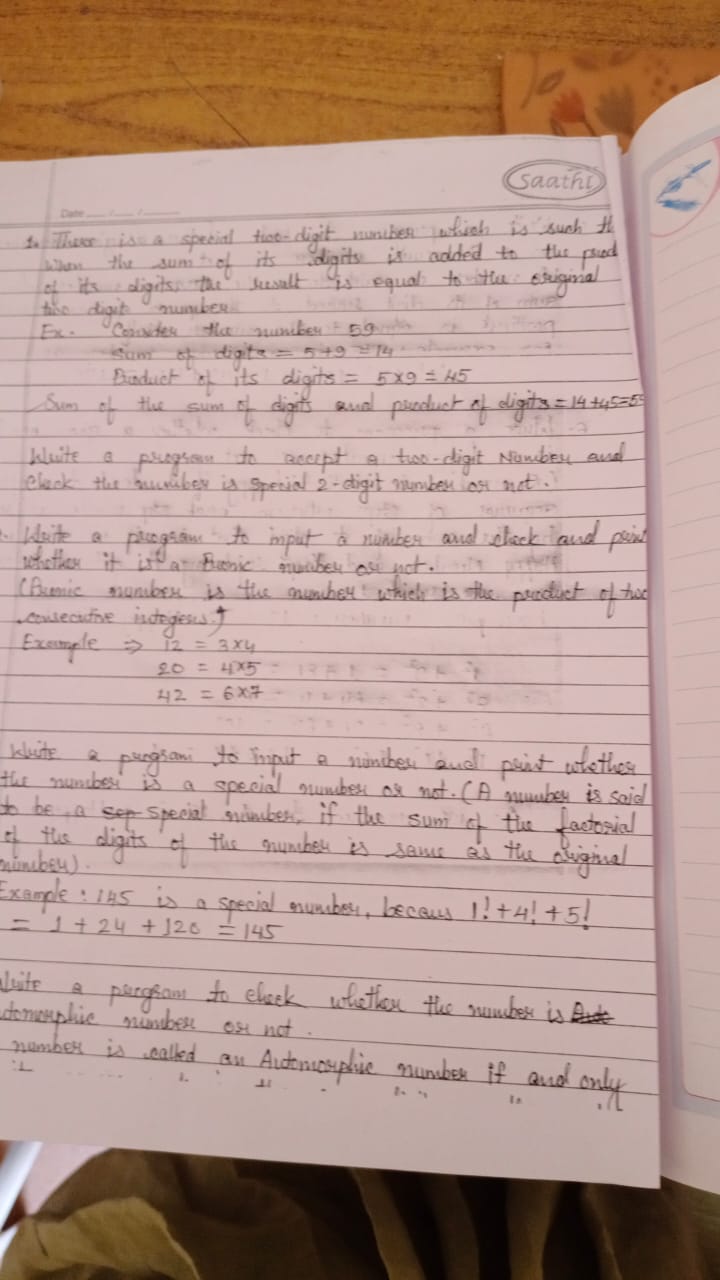 Saathi
Date
1. There is a special two-digit number which is such th
when the sum of its digits is added to the prod
of its digits the result is equal to the original
two digit number
Ex. Consider the number 59
Sum of digits = 5+9 = 14
Product of its digits = 5x9 = 45
Sum of the sum of digits and product of digits = 14+45=59
Write a program to accept a two-digit Number and
check the number is special 2-digit number or not.
Write a program to input a number and check and print
whether it is a Pronic number or not.
(Pronic number is the number which is the product of two
consecutive integers)
Example => 12 = 3x4
20 = 4x5
42 = 6x7
Write a program to input a number and print whether
the number is a special number or not. (A number is said
to be a sep special number, if the sum of the factorial
of the digits of the number is same as the original
number).
Example : 145 is a special number, becaus 1!+4!+5!
= 1 + 24 + 120 = 145
Write a program to check whether the number is
utomorphic number or not.
number is called an Automorphic number if and only